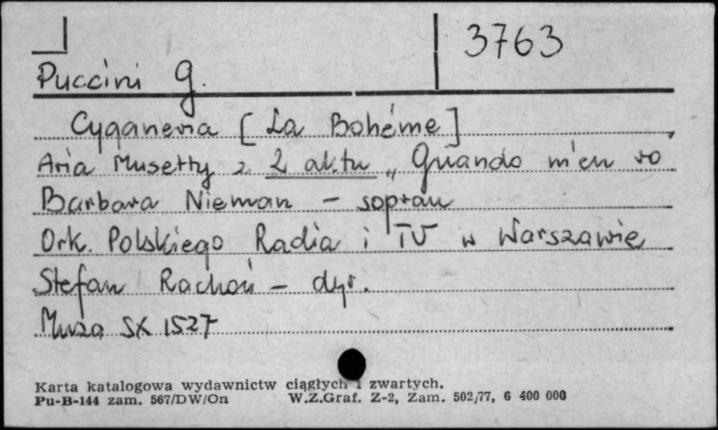 3763
Puccini G.
Cyganeria [La Bohéme]
Aria Musetty z 2 aktu „Quando m'en vo
Barbara Nieman – sopran
Ork. Polskiego Radia i TV w Warszawie
Stefan Rachoń – dyr.
Muza SX 1527
Karta katalogowa wydawnictw ciągłych i zwartych.
Pu-B-144 zam. 567/DW/On W.Z.Graf. Z-2, Zam. 502/77, 6 400 000